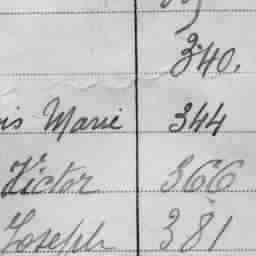 340.
is Marie 344
Victor 366
Joseph 381